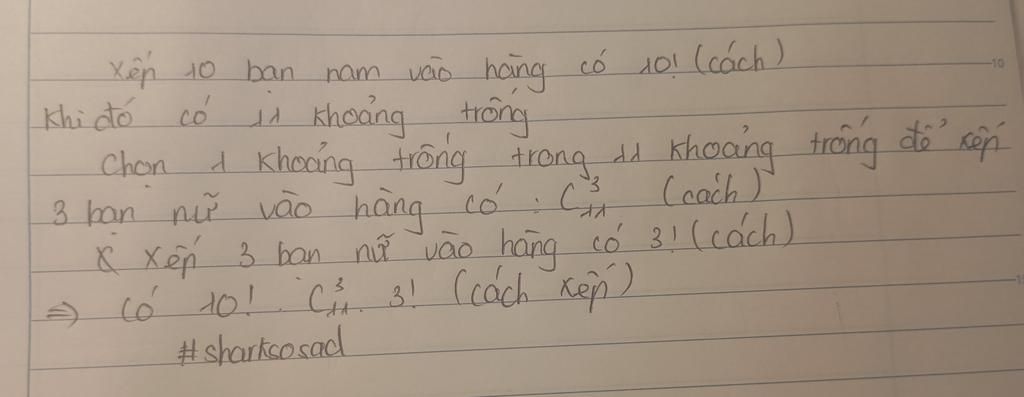 Xếp 10 bạn nam vào hàng có 10! (cách)
Khi đó có 11 khoảng trống
Chọn 1 khoảng trống trong 11 khoảng trống để xếp
3 bạn nữ vào hàng có : C³₁₁ (cách)
Xếp 3 bạn nữ vào hàng có 3! (cách)
⇒ có 10! . C³₁₁ . 3! (cách xếp)
#sharksosad